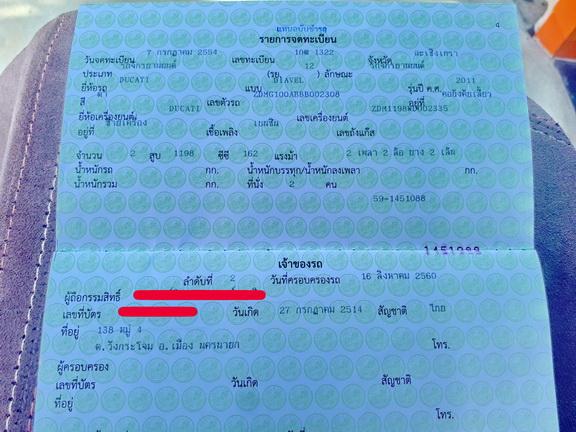 แทนฉบับชำรุด
4
รายการจดทะเบียน
วันจดทะเบียน 7 กรกฎาคม 2554 เลขทะเบียน 1กฒ 1322 จังหวัด ฉะเชิงเทรา
ประเภท รถจักรยานยนต์ (รย. 12 ) ลักษณะ รถจักรยานยนต์
ยี่ห้อรถ DUCATI แบบ DIAVEL รุ่นปี ค.ศ. 2011
สี ดำ เลขตัวรถ ZDMG100ABBB002308 อยู่ที่ คอถังคันเลี้ยว
ยี่ห้อเครื่องยนต์ DUCATI เลขเครื่องยนต์
อยู่ที่ ซ้ายเครื่อง เชื้อเพลิง เบนซิน เลขถังแก๊ส
จำนวน 2 สูบ 1198 ซีซี 162 แรงม้า 2 เพลา 2 ล้อ ยาง 2 เส้น
น้ำหนักรถ กก. น้ำหนักบรรทุก/น้ำหนักลงเพลา กก.
น้ำหนักรวม กก. ที่นั่ง 2 คน
59-1451088
เจ้าของรถ
ลำดับที่ 2 วันที่ครอบครองรถ 16 สิงหาคม 2560
ผู้ถือกรรมสิทธิ์
เลขที่บัตร วันเกิด 27 กรกฎาคม 2514 สัญชาติ ไทย
ที่อยู่ 138 หมู่ 4
ต.วังกระโจม อ.เมือง นครนายก โทร.
ผู้ครอบครอง
เลขที่บัตร วันเกิด สัญชาติ
ที่อยู่
โทร.